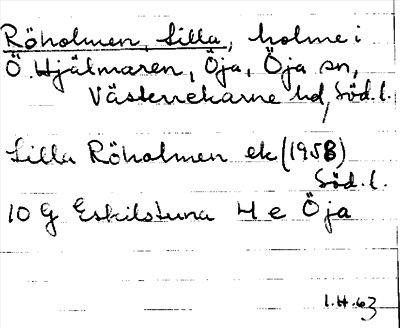 Röholmen, Lilla, holme i
Ö. Hjälmaren, Öja, Öja sn,
Västerrekarne hd, Söd. l.
Lilla Röholmen ek (1958)
Söd. l.
10 G Eskilstuna 4 e Öja
1.H.63